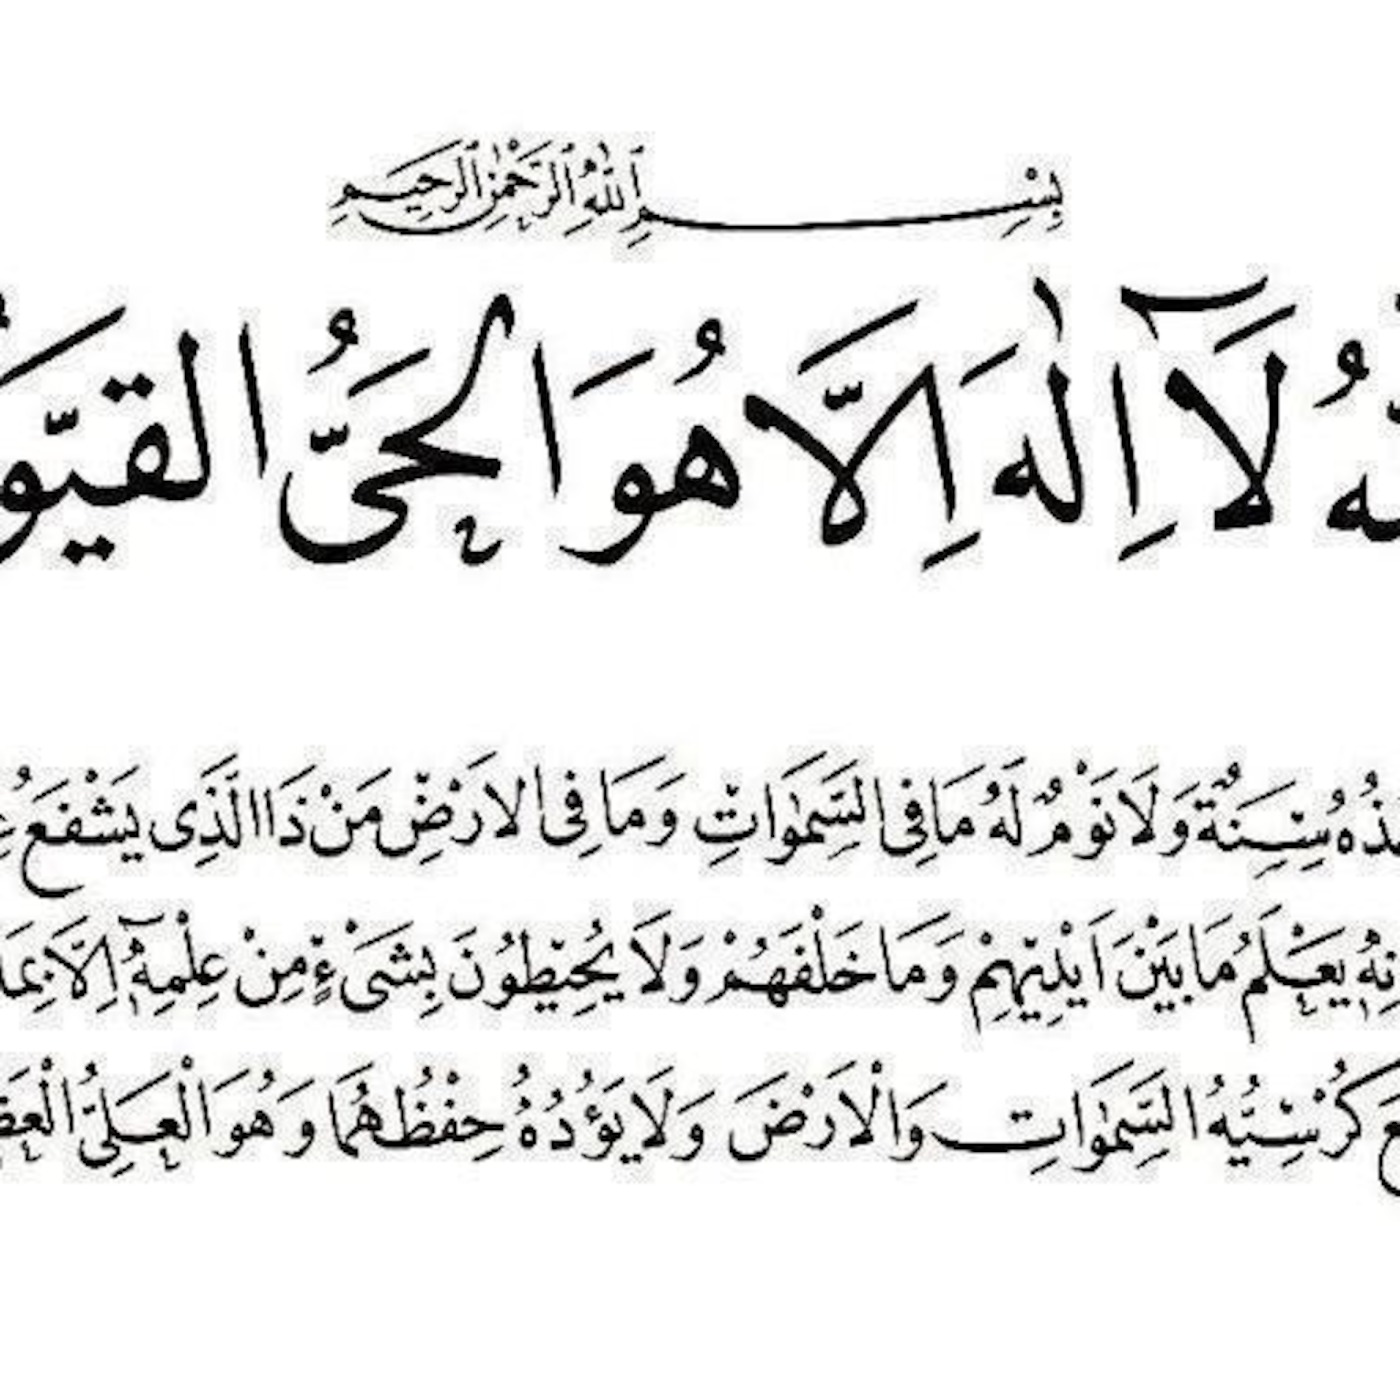 بِسْمِ ٱللّٰهِ ٱلرَّحْمٰنِ ٱلرَّحِيمِ
لَآ اِلٰهَ اِلَّا هُوَ الْحَىُّ
سِنَةٌ وَلَا نَوْمٌ لَهُ مَا فِى السَّمٰوَاتِ وَمَا فِى الْاَرْضِ مَنْ ذَا الَّذِى يَشْفَعُ
يَعْلَمُ مَا بَيْنَ اَيْدِيهِمْ وَمَا خَلْفَهُمْ وَلَا يُحِيطُونَ بِشَىْءٍ مِنْ عِلْمِهِٓ اِلَّا بِمَا
كُرْسِيُّهُ السَّمٰوَاتِ وَالْاَرْضَ وَلَا يَؤُدُهُ حِفْظُهُمَا وَهُوَ الْعَلِىُّ